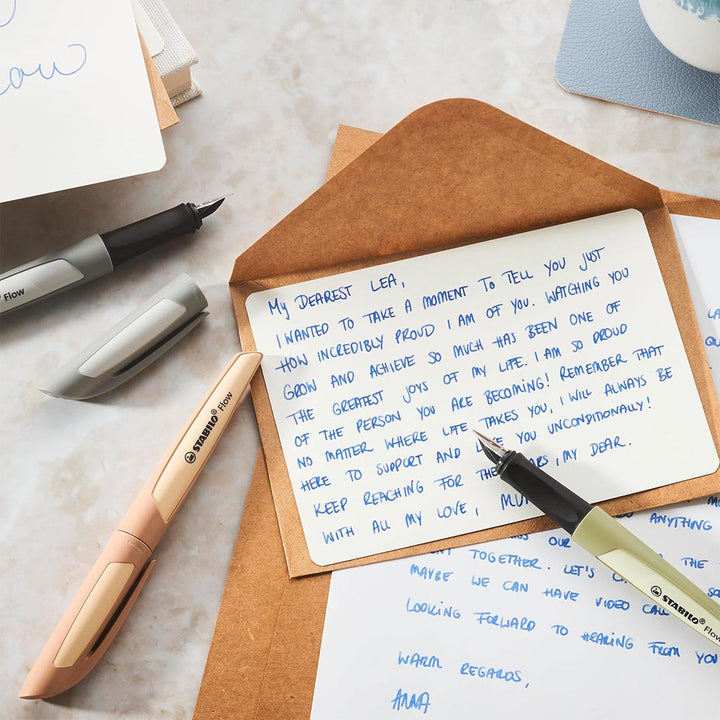 Flow
STABILO® Flow
MY DEAREST LEA,
I WANTED TO TAKE A MOMENT TO TELL YOU JUST
HOW INCREDIBLY PROUD I AM OF YOU. WATCHING YOU
GROW AND ACHIEVE SO MUCH HAS BEEN ONE OF
THE GREATEST JOYS OF MY LIFE. I AM SO PROUD
OF THE PERSON YOU ARE BECOMING! REMEMBER THAT
NO MATTER WHERE LIFE TAKES YOU, I WILL ALWAYS BE
HERE TO SUPPORT AND YOU UNCONDITIONALLY!
KEEP REACHING FOR THE , MY DEAR.
WITH ALL MY LOVE,
ANYTHING
OUR
TOGETHER. LET'S THE
MAYBE WE CAN HAVE VIDEO
LOOKING FORWARD TO HEARING FROM YOU
WARM REGARDS,
ANNA
STABILO® Flow